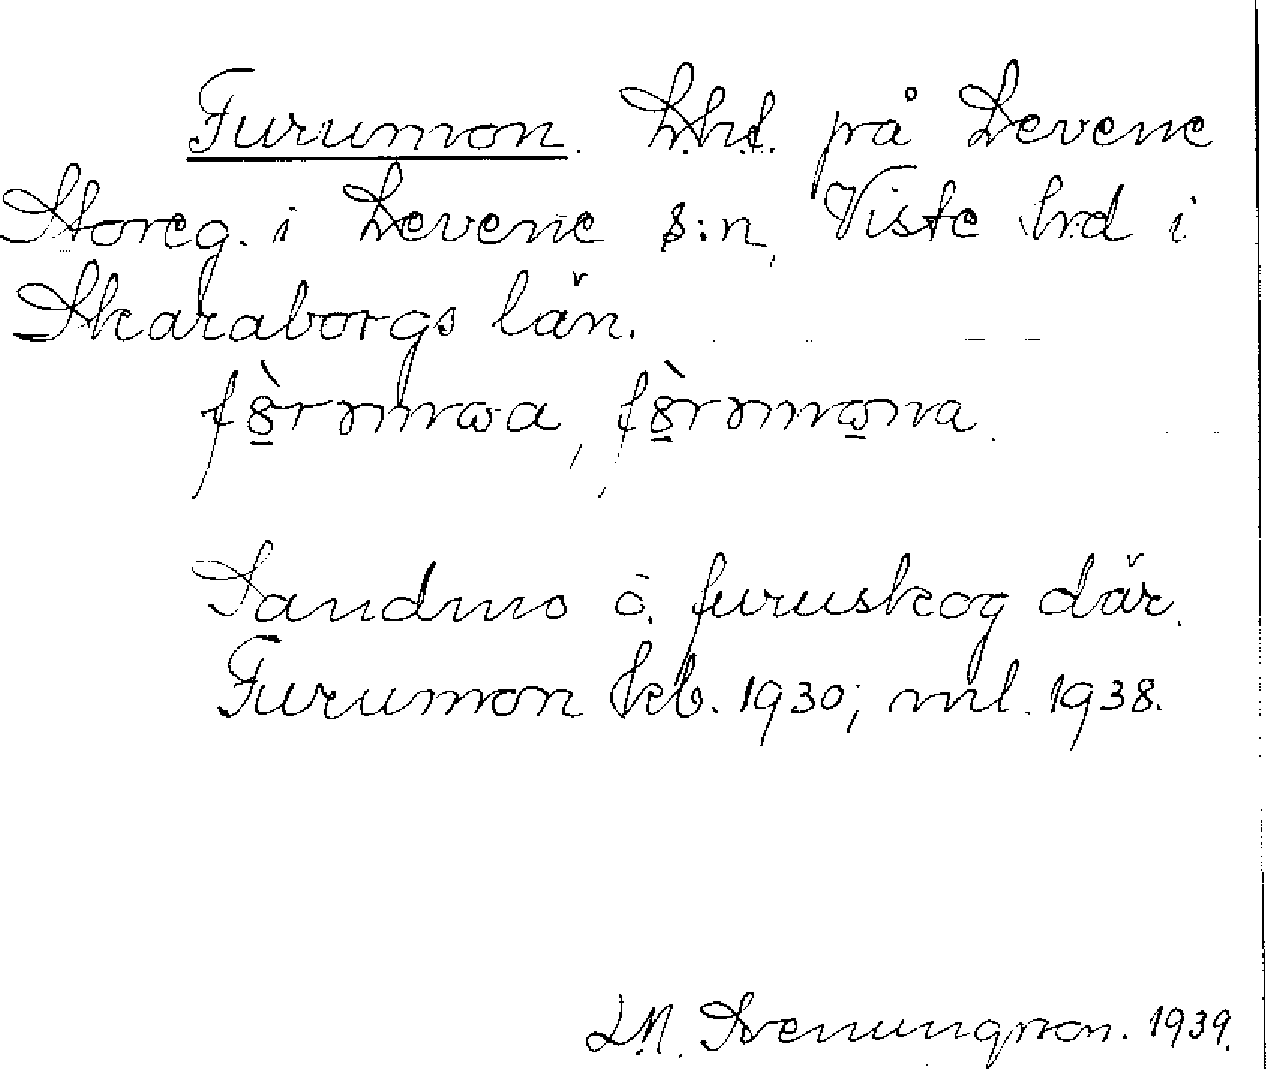 Furumon. Lht. på Levene
Storeg. i Levene s:n, Viste hrd i
Skaraborgs län.
Sandmo o. furuskog där.
Furumon Ekb. 1930; ml. 1938.
Svenungsson. 1939.